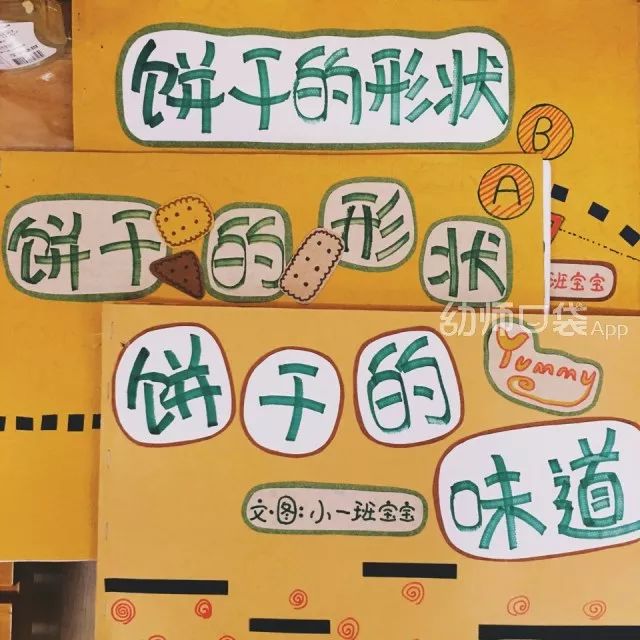 饼干的形状
B
A
饼干的形状
班宝宝
幼师口袋App
饼干的
Yummy
味道
文·图:小一班宝宝